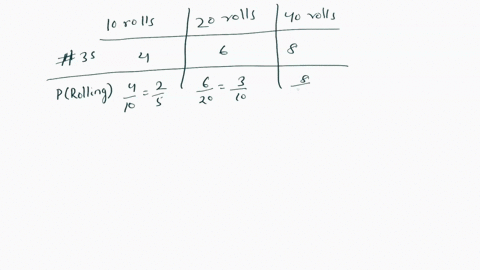 10 rolls 20 rolls 40 rolls
#3s 4 6 8
P(Rolling) 4/10 = 2/5 6/20 = 3/10 8/